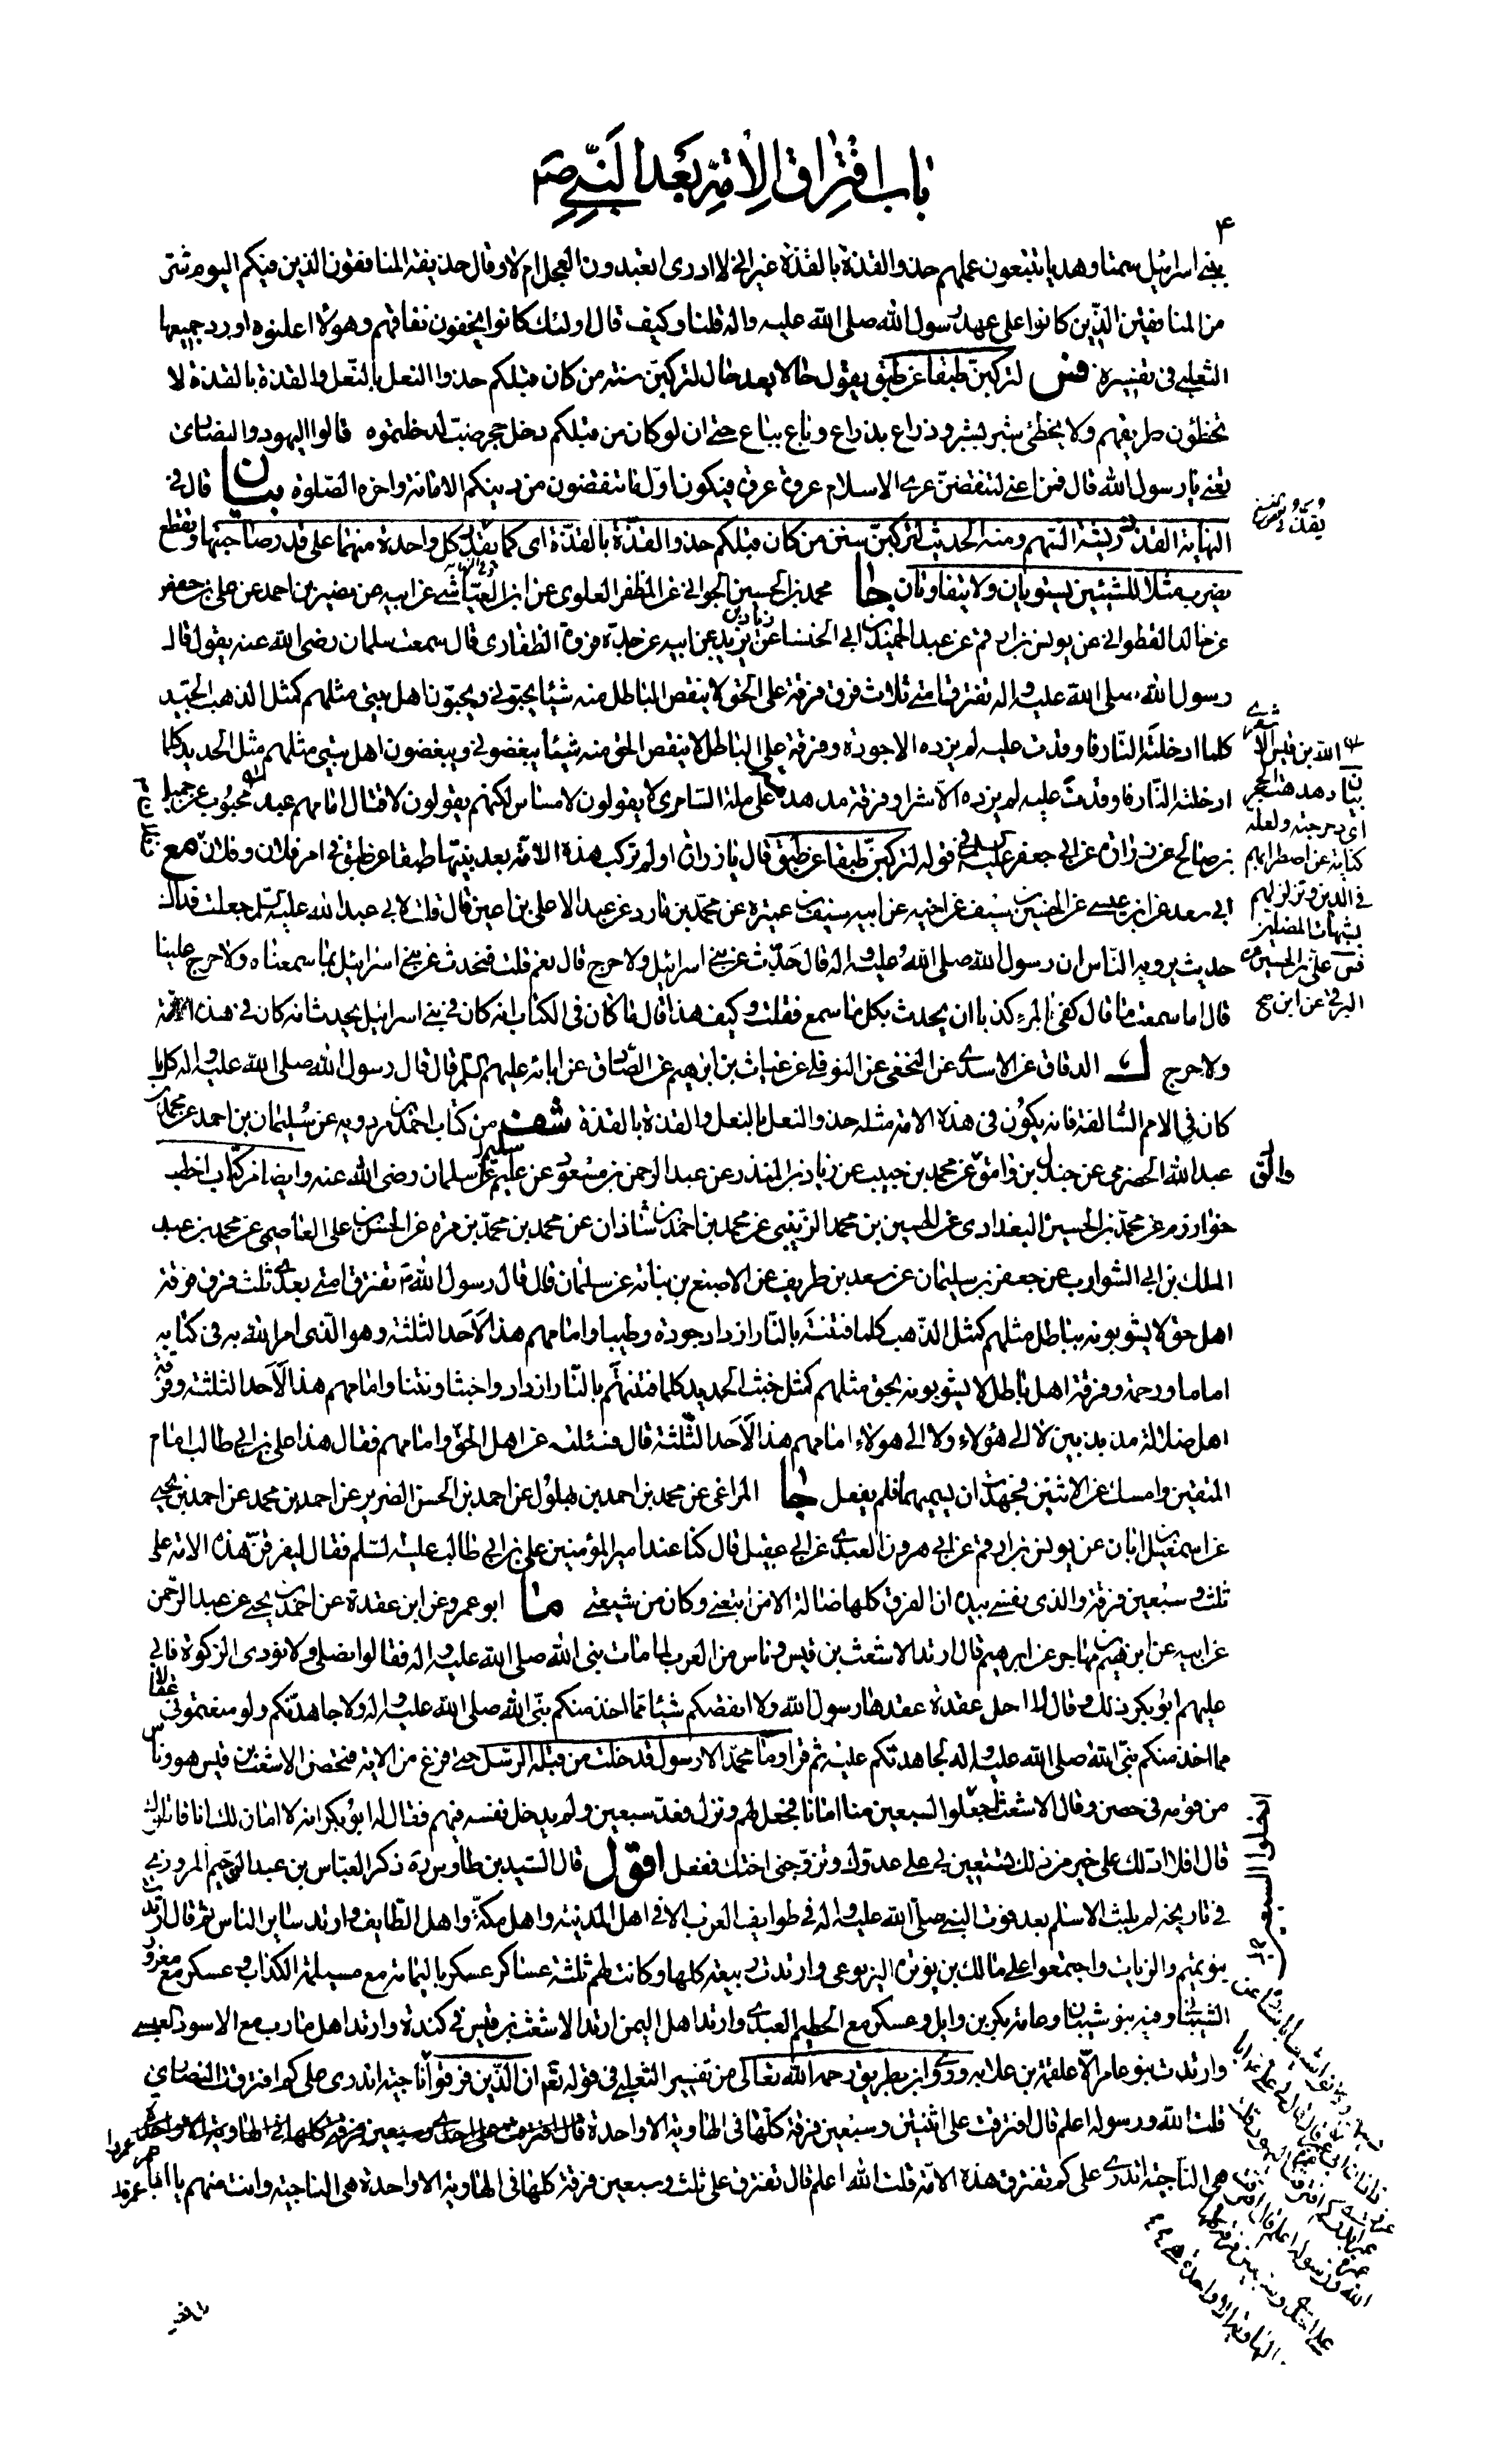 باب افتراق الامة بعد النبی ص
۴
بنی اسرائیل سمتا وهدیا تتبعون عملهم حذو القذة بالقذة غیر انی لا ادری اتعبدون العجل ام لا وقال حذیفة المنافقون الذین فیکم الیوم شر
من المنافقین الذین کانوا علی عهد رسول الله صلی الله علیه واله قلنا وکیف قال اولئک کانوا یخفون نفاقهم وهؤلا اعلنوه اورد جمیعها
الثعلبی فی تفسیره فس لترکبن طبقا عن طبق یقول حالا بعد حال لترکبن سنة من کان قبلکم حذو النعل بالنعل والقذة بالقذة لا
تخطئون طریقهم ولا یخطی شبر بشبر وذراع بذراع وباع بباع حتی ان لو کان من قبلکم دخل جحر ضب لدخلتموه قالوا الیهود والنصاری
تعنی یا رسول الله قال فمن اعنی لتنقضن عری الاسلام عروة عروة فیکون اول ما تنقضون من دینکم الامانة واخره الصلوة بیان قال فی
النهایة القذذ ریش السهم ومنه الحدیث لترکبن سنن من کان قبلکم حذو القذة بالقذة ای کما یقدر کل واحدة منهما علی قدر صاحبتها وتقطع
یضرب مثلا للشیئین یستویان ولا یتفاوتان جا محمد بن الحسین الجوانی عن المظفر العلوی عن ابن العیاشی عن ابیه عن نصیر بن احمد عن علی بن حفص
عن خالد القطوانی عن یونس بن ارقم عن عبد الحمید بن ابی الخنسا عن زیاد بن یزید عن ابیه عن جده فروة الظفاری قال سمعت سلمان رضی الله عنه یقول قال
رسول الله صلی الله علیه واله تفترق امتی ثلاث فرق فرقة علی الحق لا ینقص الباطل منه شیئا یحبونی ویحبون اهل بیتی مثلهم کمثل الذهب الجید
کلما ادخلته النار فاوقدت علیه لم یزده الا جودة وفرقة علی الباطل لا ینقص الحق منه شیئا یبغضونی ویبغضون اهل بیتی مثلهم مثل الحدید کلما
ادخلته النار فاوقدت علیه لم یزده الا شرا وفرقة مدهدهة علی ملة السامری لا یقولون لا مساس لکنهم یقولون لا قتال امامهم عبد الله محبوب عن جمیل
بن صالح عن زرارة عن ابی جعفر علیه السلام فی قوله لترکبن طبقا عن طبق قال یا زرارة اولم ترکب هذه الامة بعد نبیها طبقا عن طبق فی امر فلان وفلان وفلان مع
ابی سعد عن ابن عیسی عن الحسین بن سیف عن اخیه عن ابیه سیف بن عمیرة عن محمد بن مارد عن عبد الاعلی بن اعین قال قلت لابی عبد الله علیه السلم جعلت فداک
حدیث یرویه الناس ان رسول الله صلی الله علیه واله قال حدث عن بنی اسرائیل ولا حرج قال نعم قلت فنحدث عن بنی اسرائیل بما سمعناه ولا حرج علینا
قال اما سمعت ما قال کفی بالمرء کذبا ان یحدث بکل ما سمع فقلت وکیف هذا قال ما کان فی الکتاب انه کان فی بنی اسرائیل یحدث انه کان فی هذه الامة
ولا حرج ک الدقاق عن الاسدی عن النخعی عن النوفلی عن غیاث بن ابرهیم عن الصادق عن ابائه علیهم السلم قال قال رسول الله صلی الله علیه واله کل ما
کان فی الامم السالفة فانه یکون فی هذه الامة مثله حذو النعل بالنعل والقذة بالقذة شف من کتاب احمد بن مردویه عن سلیمان بن احمد عن محمد بن
عبد الله الحضرمی عن جندل بن والق عن محمد بن حبیب عن زیاد بن المنذر عن عبد الرحمن بن مسعود عن علیم عن سلمان رضی الله عنه وایضا من کتاب اخطب
خوارزم عن محمد بن الحسین البغدادی عن الحسین بن محمد الزینبی عن محمد بن احمد بن شاذان عن محمد بن محمد بن مرة عن الحسن بن علی العاصمی عن محمد بن عبد
الملک بن ابی الشوارب عن جعفر بن سلیمان عن سعد بن طریف عن الاصبغ بن نباته عن سلمان قال قال رسول الله ص تفترق امتی بعدی ثلث فرق فرقة
اهل حق لا یشوبونه بباطل مثلهم کمثل الذهب کلما فتنته بالنار ازداد جودة وطیبا وامامهم هذا لاحد الثلثة وهو الذی امر الله به فی کتابه
اماما ورحمة وفرقة اهل باطل لا یشوبونه بحق مثلهم کمثل خبث الحدید کلما فتنتهم بالنار ازداد واخبثا ونتنا وامامهم هذا لاحد الثلثة وفرقة
اهل ضلالة مذبذبین لا الی هؤلاء ولا الی هولاء امامهم هذا لاحد الثلثة قال فسئلته عن اهل الحق وامامهم فقال هذا علی بن ابی طالب امام
المتقین وامسک عن الاثنین فجهدت ان یسمیهما فلم یفعل جا المراغی عن محمد بن احمد بن بهلول عن احمد بن الحسن الضریر عن احمد بن محمد عن احمد بن یحیی
عن اسمعیل بن ابان عن یونس بن ارقم عن ابی هرون العبدی عن ابی عقیل قال کنا عند امیر المؤمنین علی بن ابی طالب علیه السلم فقال لیفرقن هذه الامة علی
ثلث وسبعین فرقة والذی نفسی بیده ان الفرق کلها ضالة الا من اتبعنی وکان من شیعتی ما ابو عمرو عن ابن عقدة عن احمد بن یحیی عن عبد الرحمن
عن ابیه عن ابرهیم بن مهاجر عن ابرهیم قال ارتد الاشعث بن قیس وناس من العرب لما مات نبی الله صلی الله علیه واله فقالوا نصلی ولا نؤدی الزکوة فابی
علیهم ابو بکر ذلک وقال لا احل عقدة عقدها رسول الله ولا انقصکم شیئا مما اخذ منکم نبی الله صلی الله علیه واله ولاجاهدنکم ولو منعتمونی عقالا
مما اخذ منکم نبی الله صلی الله علیه واله لجاهدتکم علیه ثم قرا وما محمد الا رسول قد خلت من قبله الرسل حتی فرغ من الایة فتحصن الاشعث بن قیس هو وناس
من قومه فی حصن وقال الاشعث اجعلوا لسبعین منا امانا فجعل لهم ونزل فعد سبعین ولم یدخل نفسه فیهم فقال له ابو بکر انه لا امان لک انا قاتلوک
قال افلا ادلک علی خیر من ذلک تستعین بی علی عدوک وتزوجنی اختک ففعل اقول قال السید بن طاوس ره ذکر العباس بن عبد الرحیم المروزی
فی تاریخه لم یلبث الاسلام بعد فوت النبی صلی الله علیه واله فی طوایف العرب الا فی اهل المدینة واهل مکة واهل الطایف وارتد سایر الناس ثم قال ارتدت
بنو تمیم والرباب واجتمعوا علی مالک بن نویرة الیربوعی وارتدت ربیعة کلها وکانت لهم ثلثة عساکر عسکر بالیمامة مع مسیلمة الکذاب وعسکر مع معرور
الشیبانی وفیه بنو شیبان وعامة بکر بن وایل وعسکر مع الحطیم العبدی وارتد اهل الیمن ارتد الاشعث بن قیس فی کندة وارتد اهل مارب مع الاسود العنسی
وارتدت بنو عامر الا علقمة بن علاثه وروی ابن بطریق رحمه الله تعالی من تفسیر الثعلبی فی قوله تعم ان الذین فرقوا اتدری علی کم افترقت النصاری
قلت الله ورسوله اعلم قال افترقت علی اثنتین وسبعین فرقة کلها فی الهاویة الا واحدة
هی الناجیة اتدری علی کم تفترق هذه الامة قلت الله اعلم قال تفترق علی ثلث وسبعین فرقة کلها فی الهاویة الا واحدة هی الناجیة وانت منهم یا ابا عمر
الله بن قیس
بیان دهدهت الحجر
ای دحرجته ولعله
کنایة عن اضطرابهم
فی الدین وتزلزلهم
بشبهات المضلین
فس علی بن الحسین عن
البرقی عن ابن مح
والق
اجعلوا السبعین